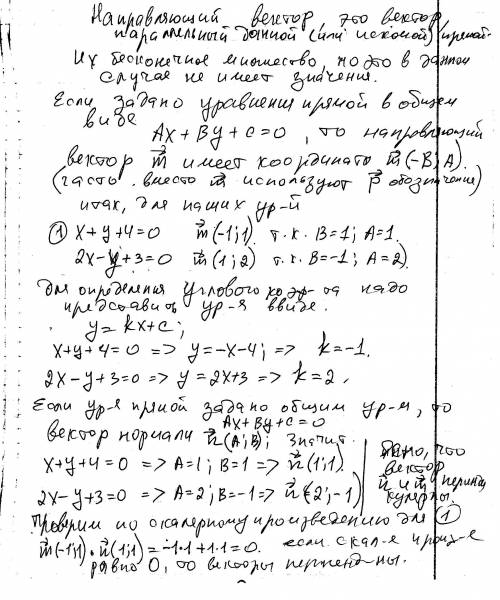 Направляющий вектор, это вектор,
параллельный данной (или искомой) прямой.
Их бесконечное множество, но это в данном
случае не имеет значения.
Если задано уравнения прямой в общем
виде
Ax + By + c = 0, то направляющий
вектор m⃗ имеет координаты m⃗(-B; A).
(часто вместо m⃗ используют p⃗ обозначение)
итак, для наших ур-й
① x+y+4=0 m⃗(-1;1) т.к. B=1; A=1.
2x-y+3=0 m⃗(1;2) т.к. B=-1; A=2)
Для определения углового коэф-та надо
представить ур-я ввиде.
y=kx+c;
x+y+4=0 => y=-x-4; => k=-1.
2x-y+3=0 => y=2x+3 => k=2.
Если ур-я прямой задано общим ур-м, то
Ax+By+c=0
вектор нормали n⃗(A;B); Значит.
x+y+4=0 => A=1; B=1 => n⃗(1;1).
2x-y+3=0 => A=2; B=-1 => n⃗(2;-1)
что
вектор
n⃗ и m⃗ перпен
кулярны.
Проверим по скалярному произведению для ①
m⃗(-1;1)·n⃗(1;1)=-1·1+1·1=0. если скал-е произ-е
равно 0, то векторы перпенд-ны.